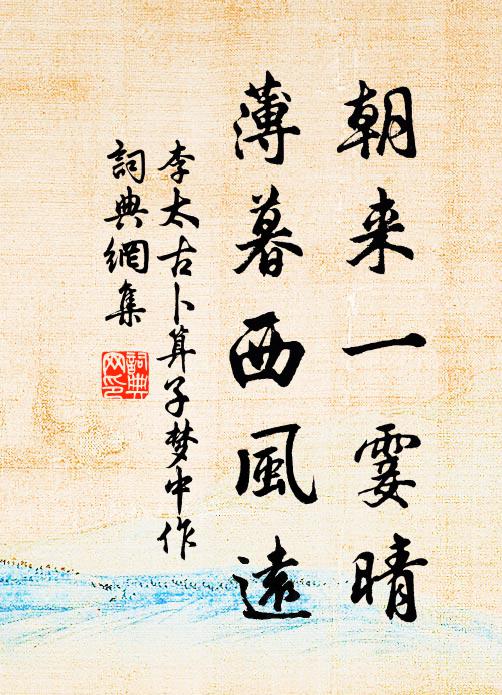 朝来一霎晴
薄暮西風遠
李太古卜算子梦中作
詞典網集
詞典網印